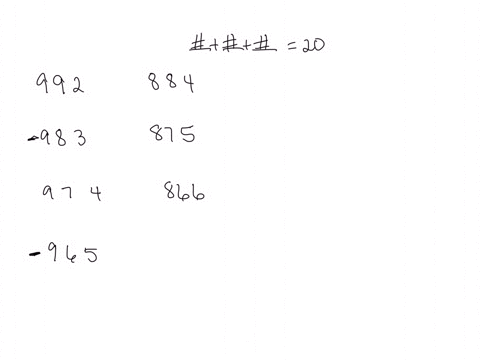 # + # + # = 20
992 884
-983 875
974 866
-965